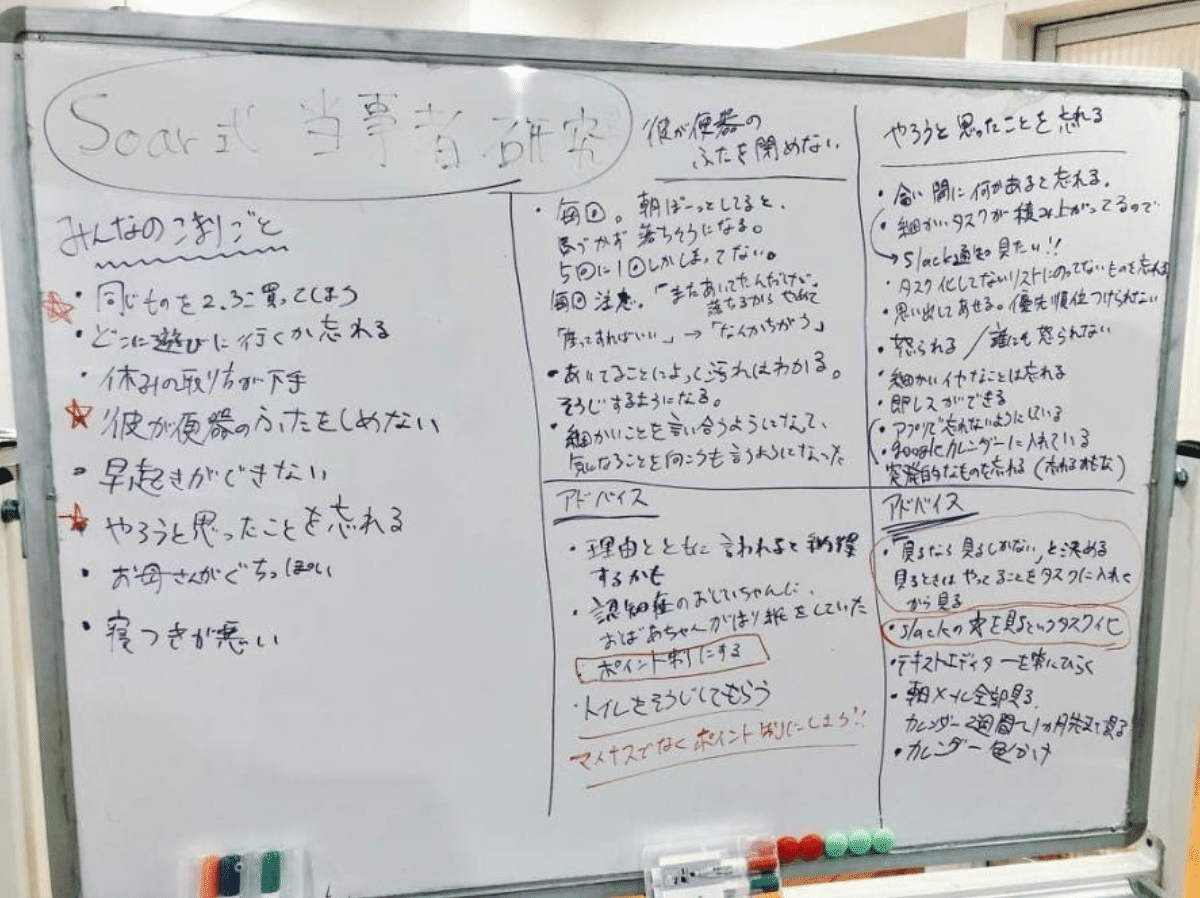 Soar式 当事者研究
みんなのこまりごと
・同じものを2.3こ買ってしまう
・どこに遊びに行くか忘れる
・休みの取り方が下手
・彼が便器のふたをしめない
・早起きができない
・やろうと思ったことを忘れる
・お母さんがぐちっぽい
・寝つきが悪い
彼が便器の
ふたを閉めない
・毎回。朝ぼーっとしてると、
気づかず落ちそうになる。
5回に1回しかしまってない。
毎回注意。「またあいてたんだけど。
落ちるからやめて
「座ってすればいい」→「なんかちがう」
・あいてることによって汚れはわかる。
そうじするようになる。
・細かいことを言い合うようになって、
気になることを向こうも言うようになった
アドバイス
・理由とともに言われると納得
するかも
・認知症のおじいちゃんに、
おばあちゃんがはり紙をしていた
ポイント制にする
・トイレをそうじしてもらう
マイナスでなくポイント制にしよう!!
やろうと思ったことを忘れる
・合い間に何かあると忘れる。
・細かいタスクが積み上がってるので
→Slack通知見たい!!
・タスク化してないリストにのってないものを忘れる
・思い出してあせる。優先順位つけられない
・怒られる/誰にも怒られない
・細かいイヤなことは忘れる
・即レスができる
・アプリで忘れないようにしている
・googleカレンダーに入れている
突発的なものを忘れる
アドバイス
・「見るなら見るしかない」と決める
見るときはやってることをタスクに入れて
から見る
・Slackの を見るというタスク化
・テキストエディターを常にひらく
・朝メール全部見る
カレンダー2週間で1か月先まで見る
・カレンダー色かけ